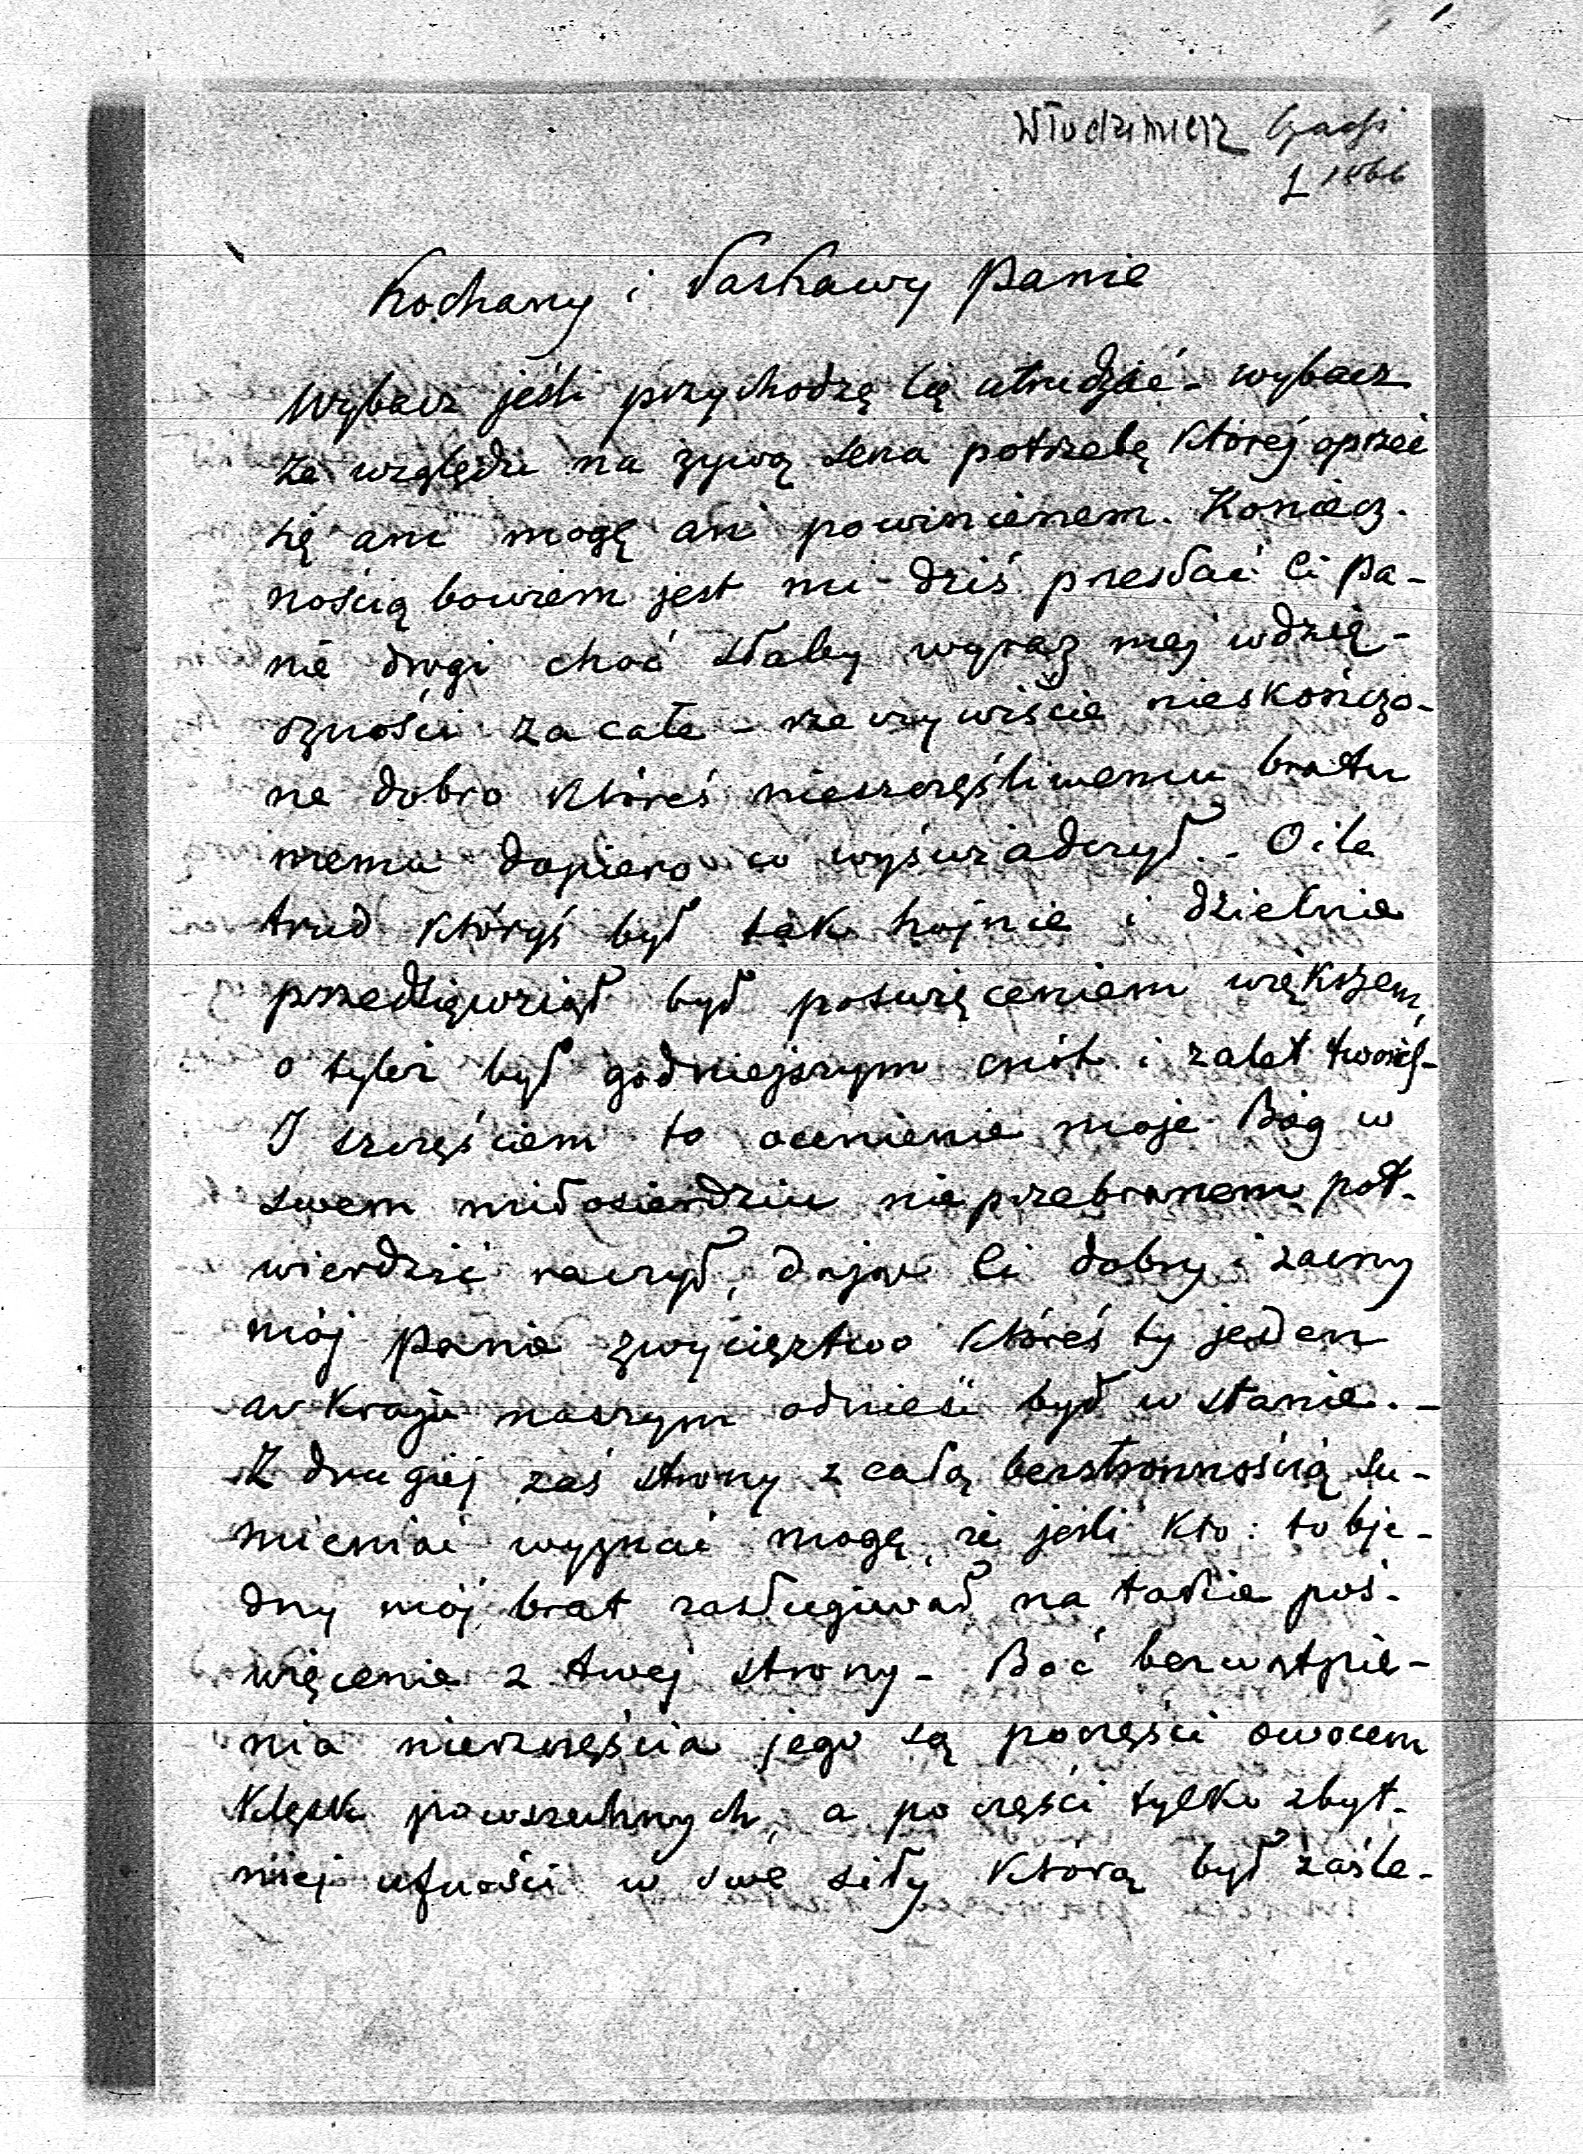 Włodzimierz Czacki
1866
Kochany i Łaskawy Panie
Wybacz jeśli przychodzę Cię utrudzać - wybacz
ze względu na żywą serca potrzebę której oprzeć
się ani mogę ani powinienem. Koniecz-
nością bowiem jest mi dziś przesłać Ci Pa-
nie drogi choć słaby wyraz mej wdzię-
czności za całe - rzeczywiście nieskończo-
ne dobro któreś nieszczęśliwemu bratu
memu dopiero co wyświadczył. - O ile
trud któryś był tak hojnie i dzielnie
przedsięwziął był poświęceniem większem,
o tyleż był godniejszym cnót i zalet twoich -
I szczęściem to ocenienie moje Bóg w
swem miłosierdziu nieprzebranem pot-
wierdzić raczył, dając Ci dobry i zacny
mój Panie zwycięztwo któreś ty jeden
w kraju naszym odnieść był w stanie. -
Z drugiej zaś strony z całą bezstronnością su-
mienia wyznać mogę, że jeśli kto: to bie-
dny mój brat zasługiwał na takie poś-
więcenie z twej strony - Boć bezwątpie-
nia nieszczęścia jego są poczęści owocem
klęsk powszechnych, a poczęści tylko zbyt-
niej ufności w swe siły którą był zaśle-